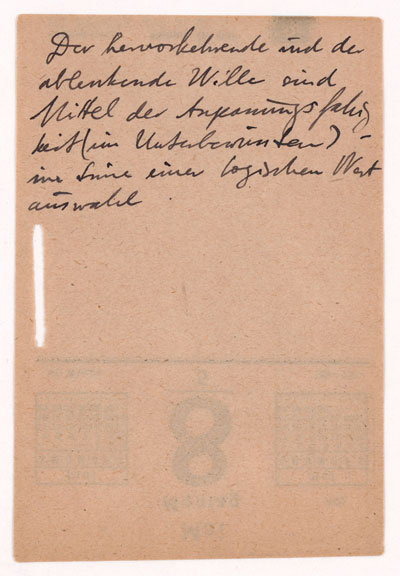 Der hervorkehrende und der
ablenkende Wille sind
Mittel der Anpassungsfähig
keit (im Unterbewussten) –
im Sinne einer logischen Wert
auswahl
8